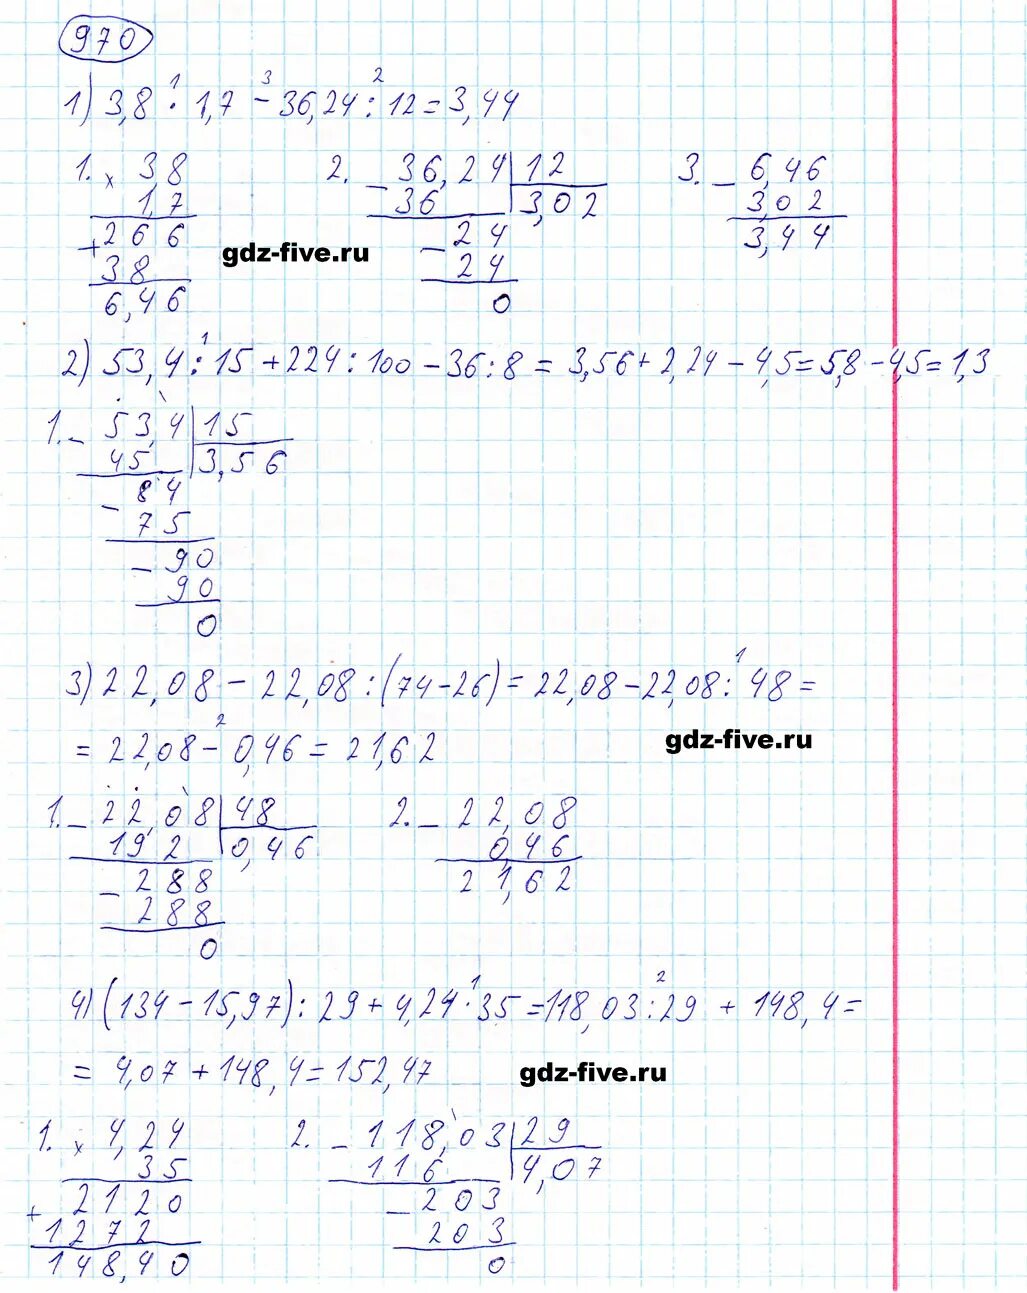 970
1) 3,8 · 1,7 - 36,24 : 12 = 3,44
1. × 3,8
1,7
+ 266
38
6,46
2. - 36,24 | 12
36 3,02
- 24
24
0
3. - 6,46
3,02
3,44
gdz-five.ru
2) 53,4 : 15 + 224 : 100 - 36 : 8 = 3,56 + 2,24 - 4,5 = 5,8 - 4,5 = 1,3
1. - 53,4 | 15
45 3,56
- 84
75
- 90
90
0
3) 22,08 - 22,08 : (74 - 26) = 22,08 - 22,08 : 48 =
= 22,08 - 0,46 = 21,62
gdz-five.ru
1. - 22,08 | 48
192 0,46
- 288
288
0
2. - 22,08
0,46
21,62
4) (134 - 15,97) : 29 + 4,24 · 35 = 118,03 : 29 + 148,4 =
= 4,07 + 148,4 = 152,47
gdz-five.ru
1. × 4,24
35
+ 2120
1272
148,40
2. - 118,03 | 29
116 4,07
- 203
203
0